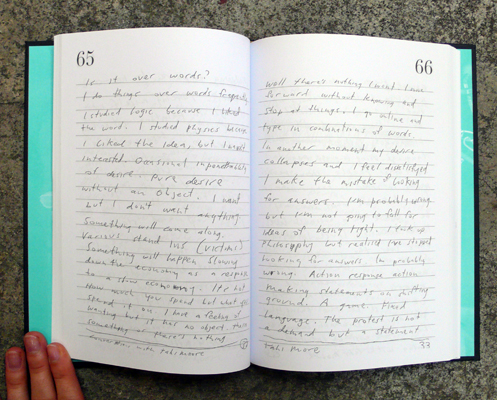 65
Is it over words?
I do things over words frequently
I studied logic because I liked
the word. I studied physics because
I liked the idea, but I wasn't
interested. Occasional impenetrability
of desire. Pure desire
without an object. I want
but I don't want anything
Something will come along.
Various stand ins (victims)
Something will happen. Slowing
down the economy as a response
to a slow economy. It's not
how much you spend but what you
spend it on. I have a feeling of
wanting but it has no object. There's
something or there's nothing
conversation with Tahi Moore
66
Well there's nothing I want. I move
forward without knowing and
stop at things. I go online and
type in combinations of words.
In another moment my desire
collapses and I feel dissatisfied
I make the mistake of looking
for answers. I'm probably wrong
but I'm not going to fall for
ideas of being right. I pick up
philosophy but realised I've stopped
looking for answers. I'm probably
wrong. Action response action
making statements on shifting
ground. A game. Mixed
language. The protest is not
a demand but a statement
Tahi Moore 33